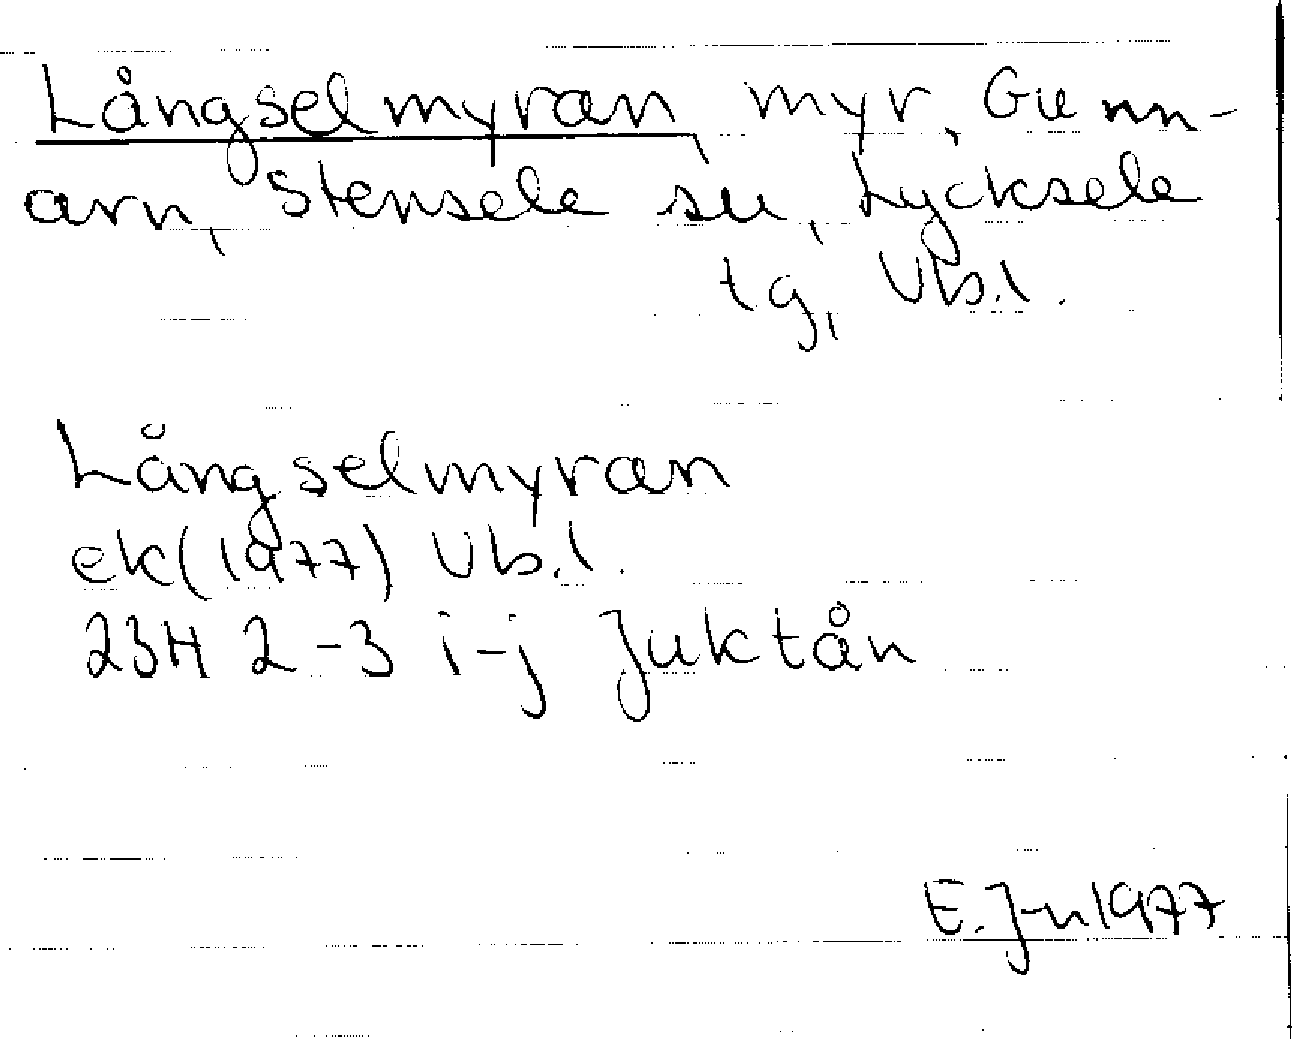 Långselmyran, myr, Gunn-
arn, Stensele su, Lycksele
tg, Vb.l.
Långselmyran
ek(1977) Vb.l.
23H 2-3 i-j Juktån
E. J-n 1977